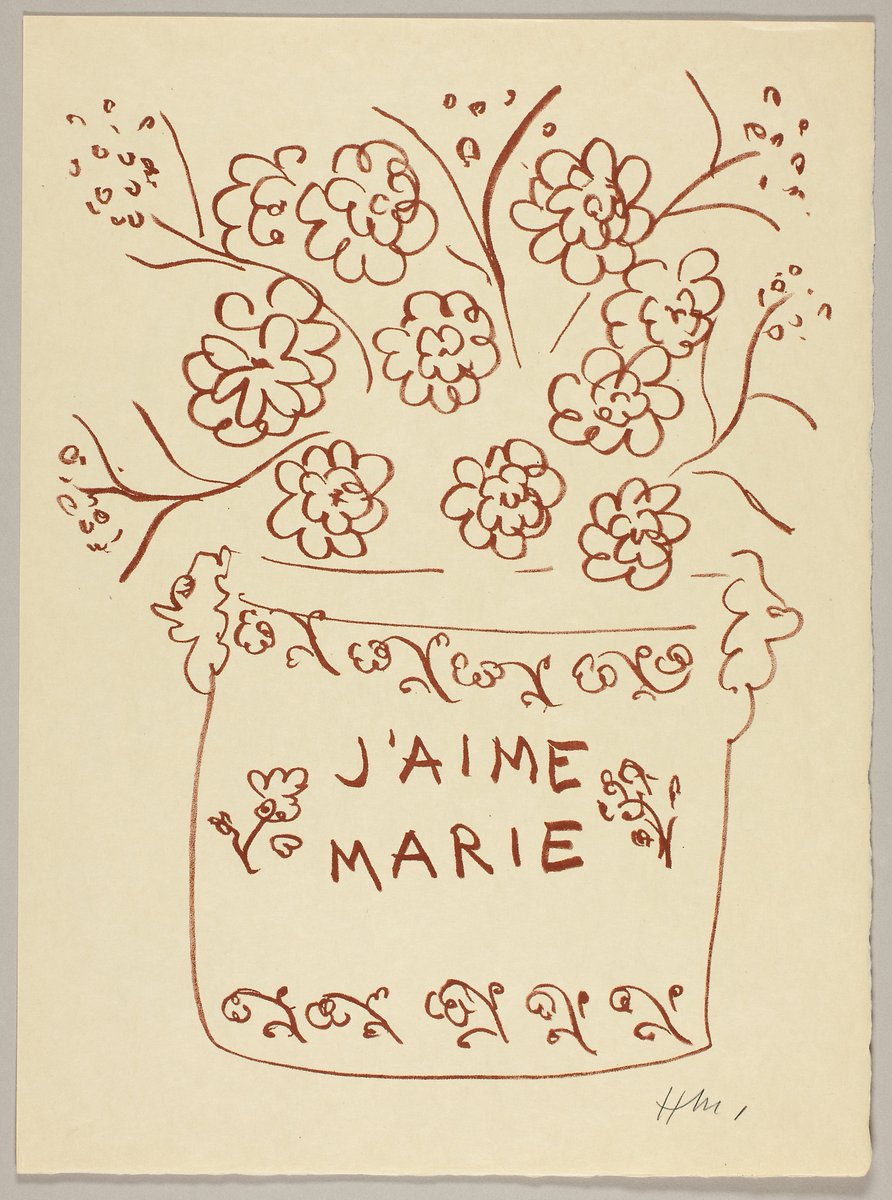 J'AIME
MARIE
HM